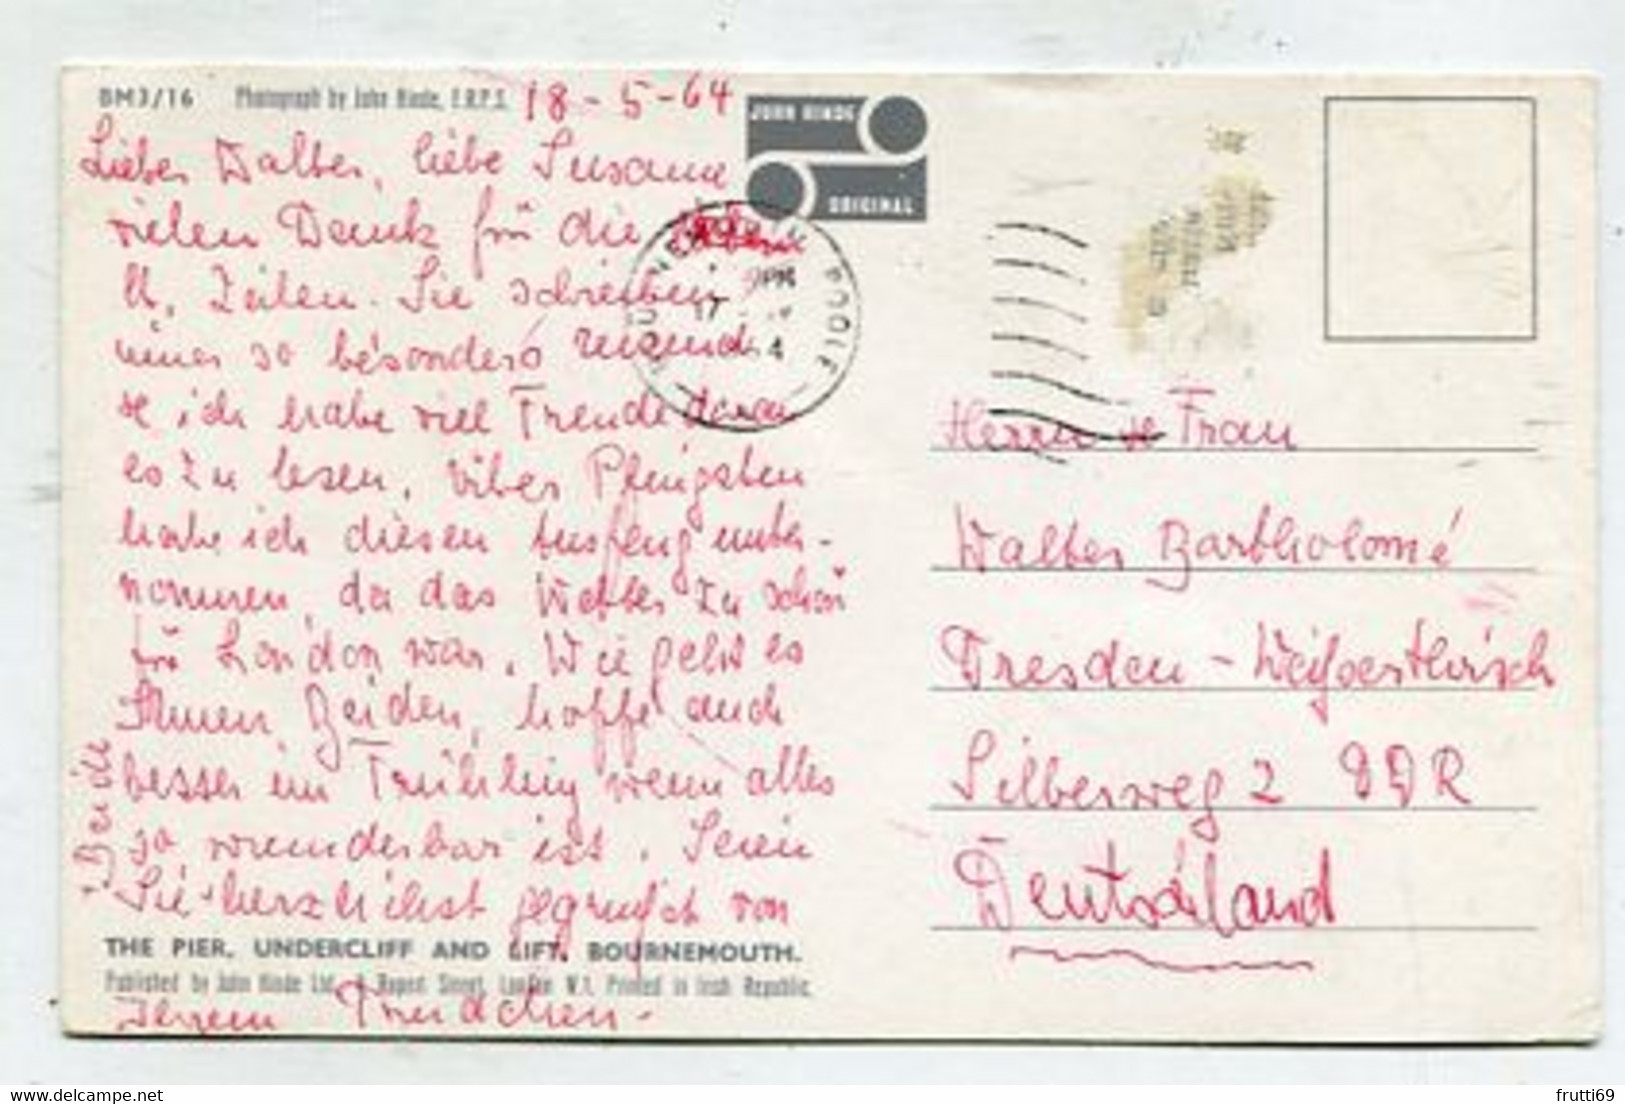 BM3/16 Photograph by John Hinde, F.R.P.S. 18-5-64
JOHN HINDE
ORIGINAL
Lieber Walter, liebe Susanne
vielen Dank für die
u. Zeilen. Sie schreiben
immer so besonders reizend
& ich habe viel Freude daran
es zu lesen. Über Pfingsten
habe ich diesen Ausflug unter-
nommen, da das Wetter zu schön
in London war. Wie geht es
Ihnen Beiden, hoffe auch
besser im Frühling wenn alles
so wunderbar ist. Seien
Sie herzlichst gegrüsst von
Beide
THE PIER, UNDERCLIFF AND LIFT, BOURNEMOUTH.
Published by John Hinde Ltd., Rupert Street, London W.1. Printed in Irish Republic.
Ihrem Trudchen-
POOLE
PM
17
4
Herrn & Frau
Walter Bartholomé
Dresden-Weißer Hirsch
Silberweg 2 DDR
Deutschland
frutti69